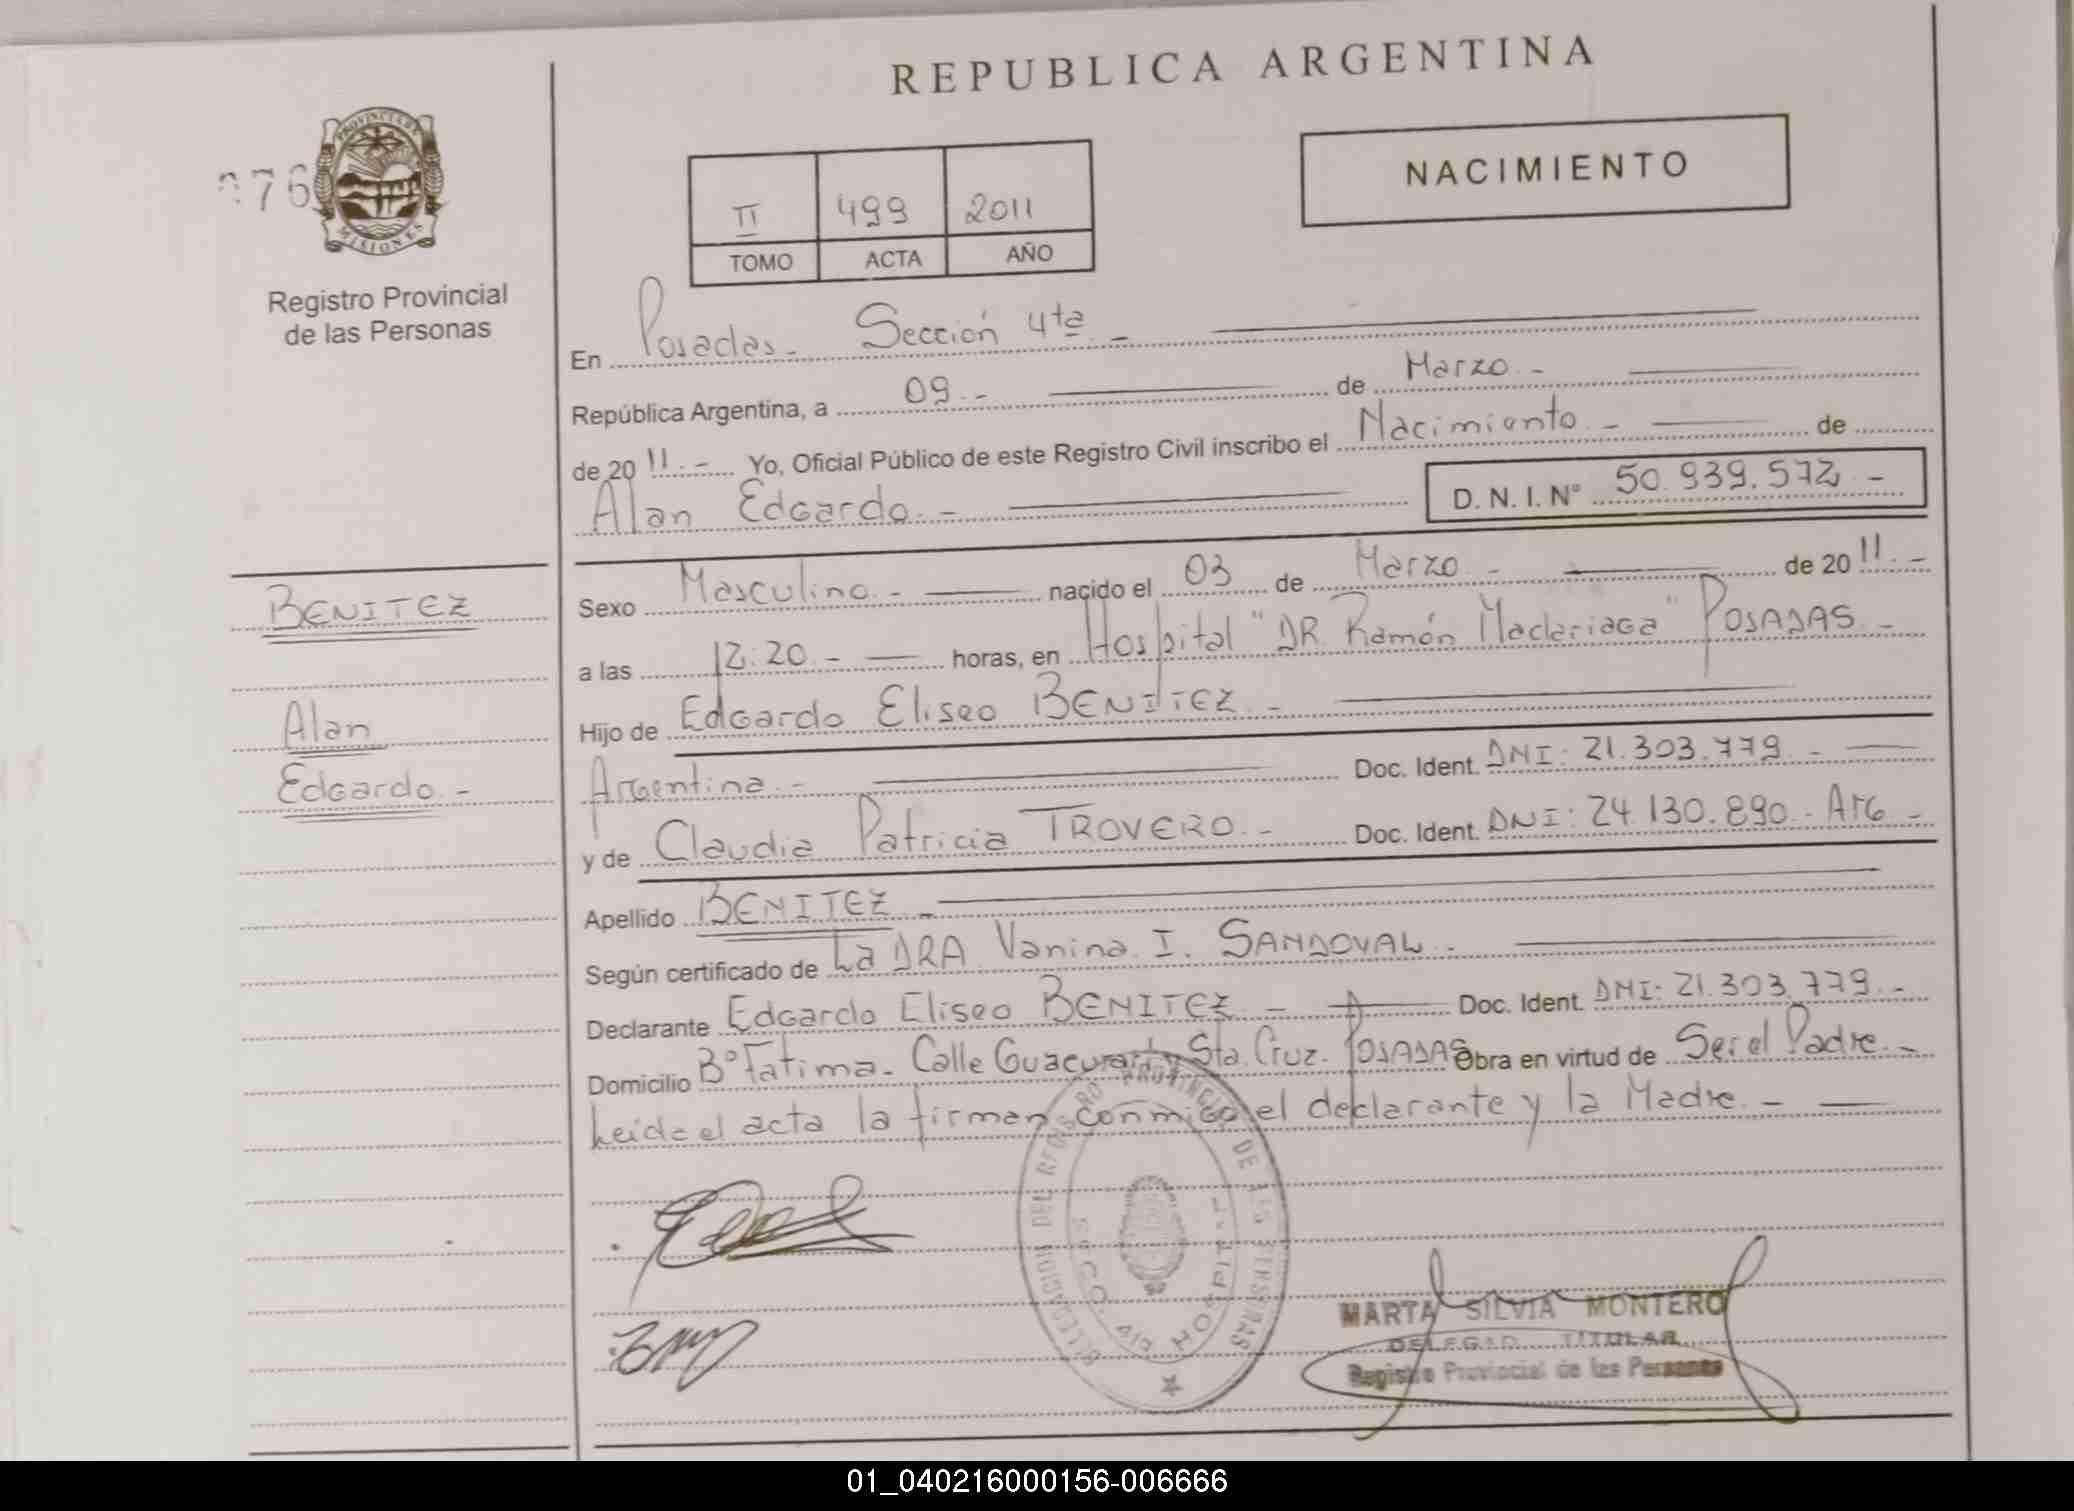 REPUBLICA ARGENTINA
NACIMIENTO
76
PROVINCIA DE MISIONES
Registro Provincial
de las Personas
II 499 2011
TOMO ACTA AÑO
En Posadas - Sección 4ta. -
República Argentina, a 09. - de Marzo. -
de 20 11. - Yo, Oficial Público de este Registro Civil inscribo el Nacimiento. - de
Alan Edgardo. - D. N. I. N° 50.939.572 -
BENITEZ
Alan
Edgardo. -
Sexo Masculino. - nacido el 03 de Marzo. - de 20 11. -
a las 12:20. - horas, en Hospital "DR. Ramón Madariaga" POSADAS. -
Hijo de Edgardo Eliseo BENITEZ. -
Argentina. - Doc. Ident. DNI: 21.303.779. -
y de Claudia Patricia TROVERO. - Doc. Ident. DNI: 24.130.890. - ARG -
Apellido BENITEZ. -
Según certificado de La DRA. Vanina I. SANDOVAL. -
Declarante Edgardo Eliseo BENITEZ - Doc. Ident. DNI: 21.303.779. -
Domicilio B° Fatima - Calle Guacurarí y Sta. Cruz - POSADAS Obra en virtud de Ser el Padre. -
Leida el acta la firman conmigo el declarante y la Madre. -
DELEGACION DEL REGISTRO PROVINCIAL DE LAS PERSONAS
SECC. 4ta HOSPITAL
MARTA SILVIA MONTERO
DELEGADA TITULAR
Registro Provincial de las Personas
01_040216000156-006666